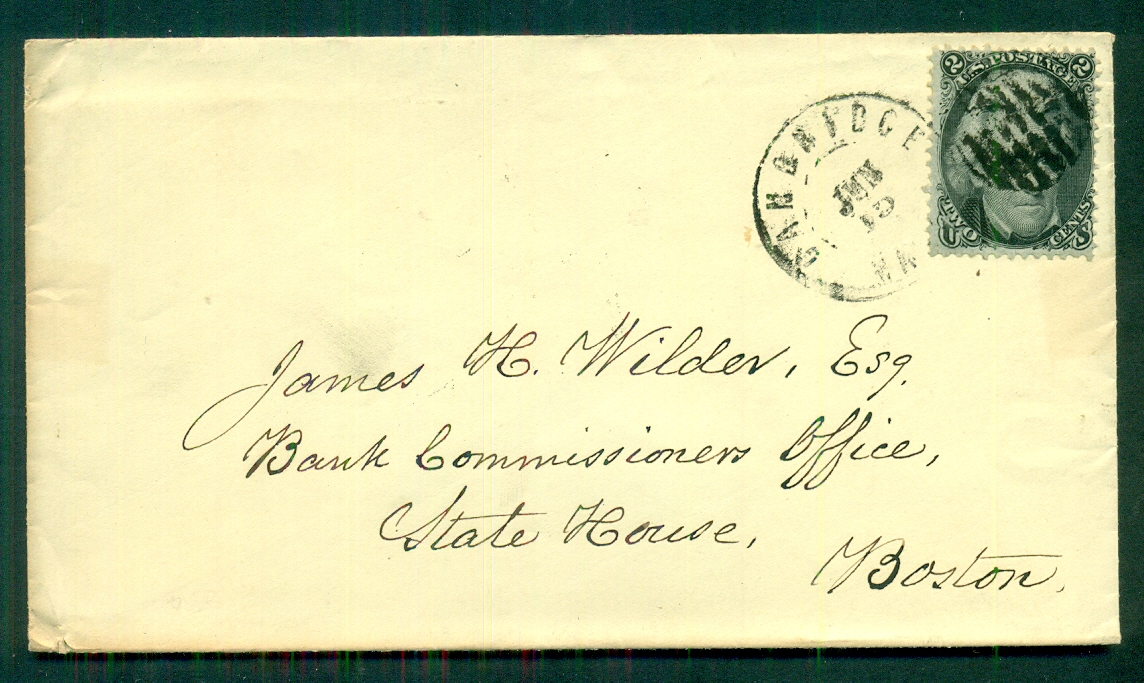 2 U.S. POSTAGE 2
CAMBRIDGE
JUN
MA
TWO CENTS
U S
James H. Wilder, Esq.
Bank Commissioners Office,
State House,
Boston.